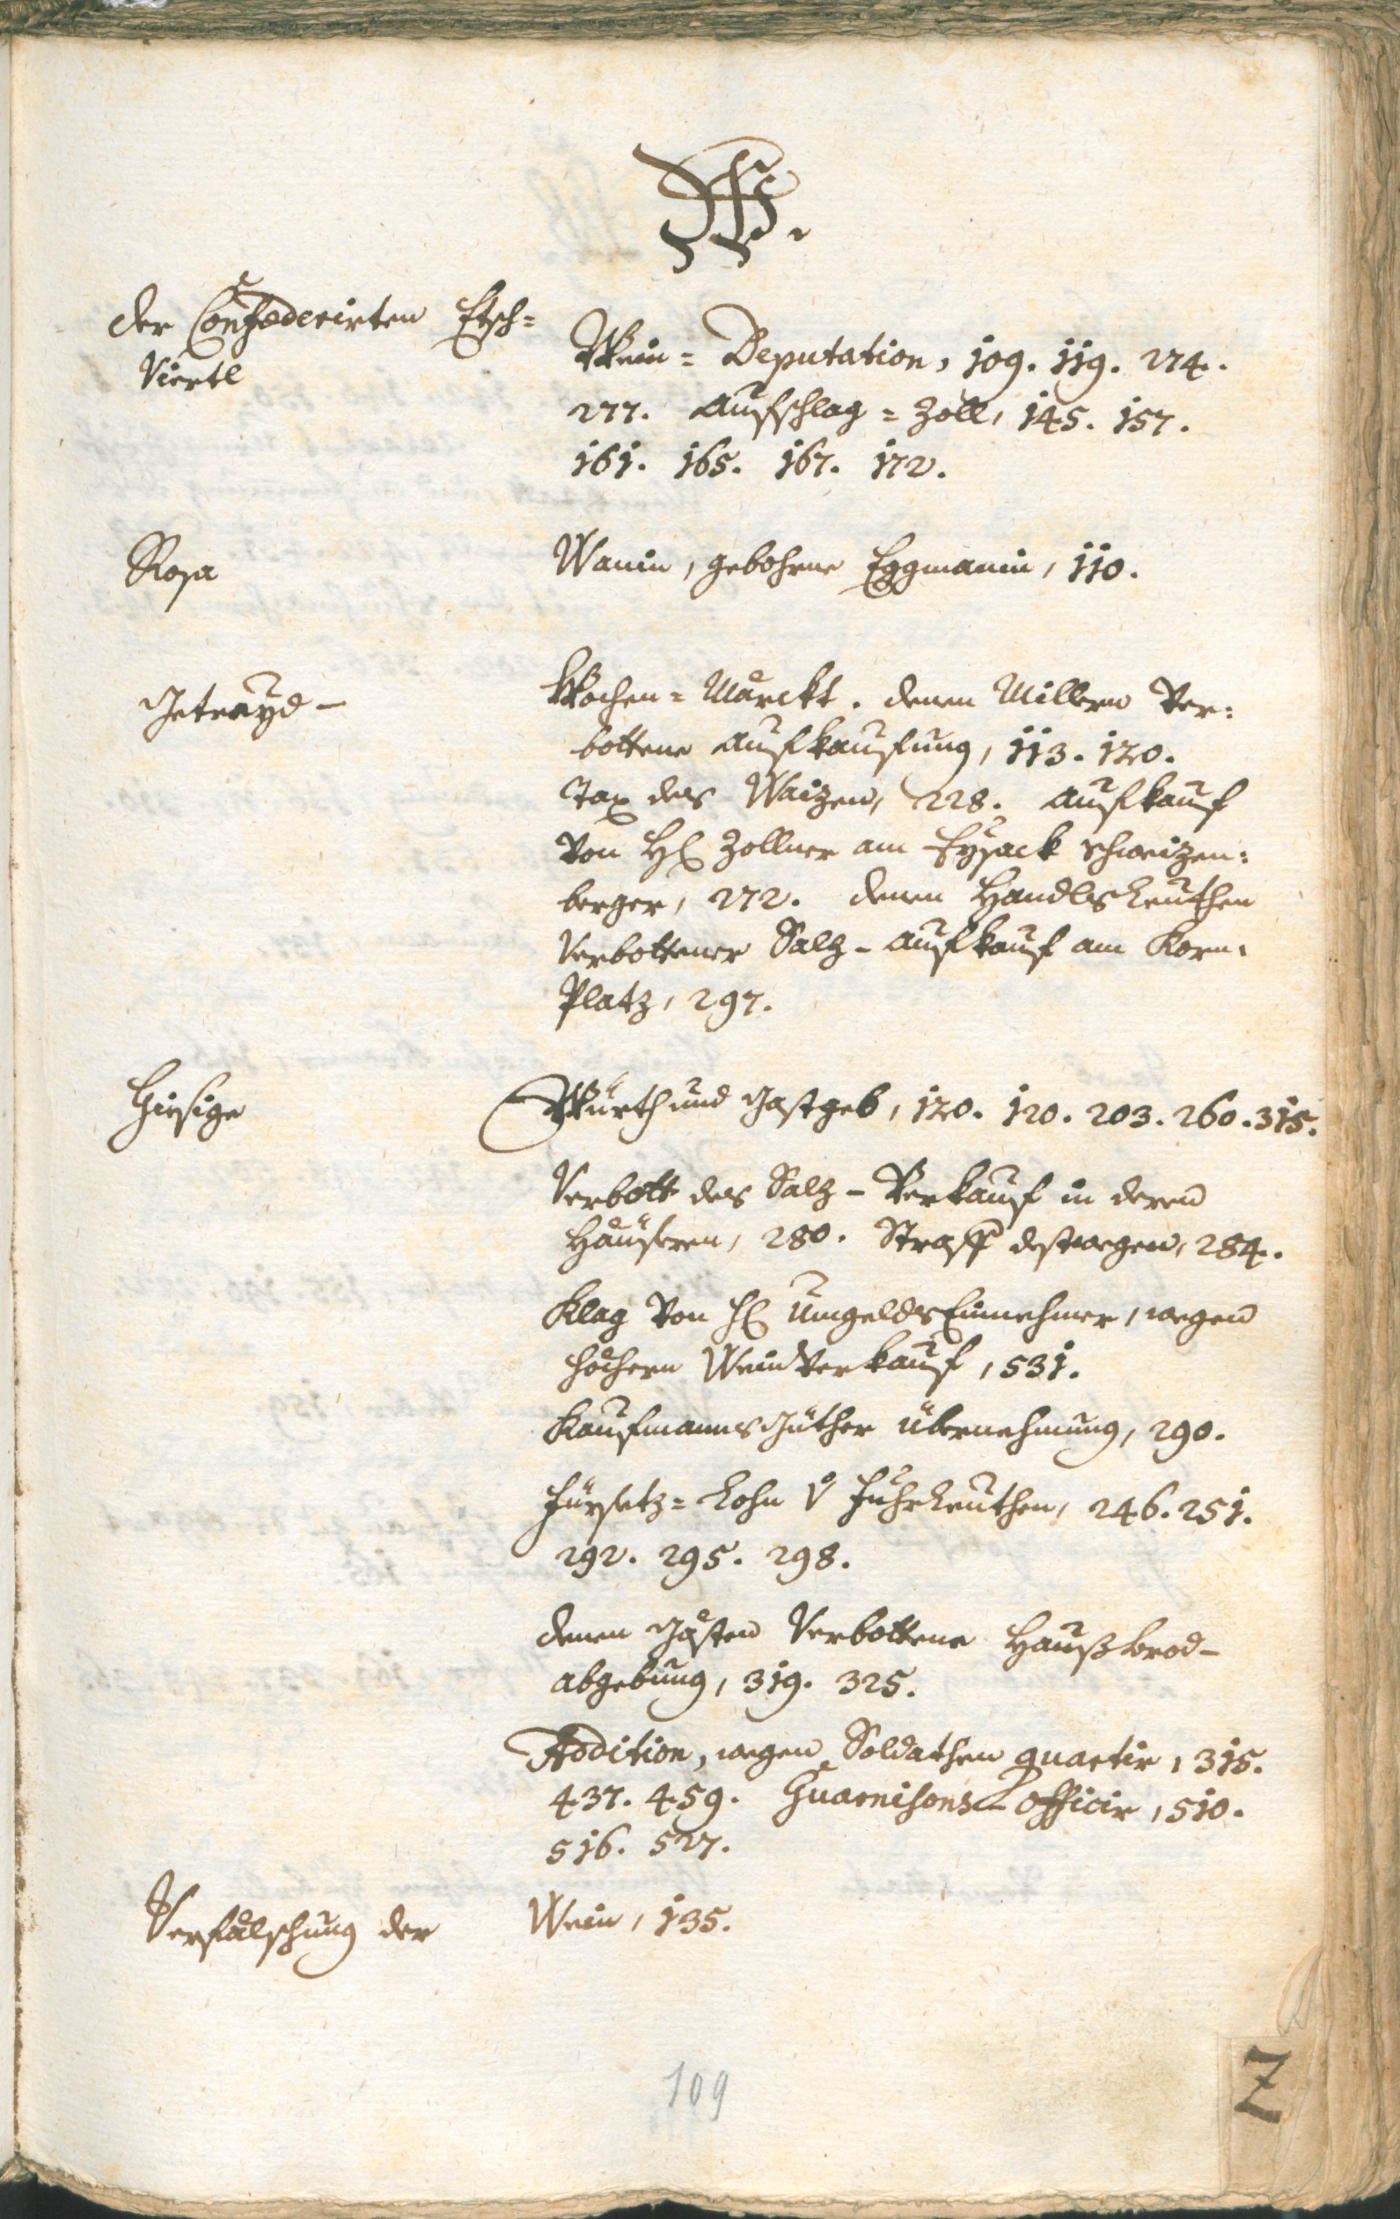 W.
der Confœderirten Etsch=
Viertl
Wein= Deputation, 109. 119. 274.
277. Aufschlag= Zoll, 145. 157.
161. 165. 167. 172.
Rosa
Wanin, gebohrne Eggmanin, 110.
Getrayd-
Wochen= Marckt. denen Millern Ver=
bottene Aufkaufung, 113. 120.
Tax des Waizen, 228. Aufkauf
von H Zollner am Eysack Schweizen=
berger, 272. denen Handlsleuthen
Verbottener Salz-Aufkauf am Korn=
Platz, 297.
Hiesige
Würth und Gastgeb, 120. 120. 203. 260. 315.
Verbott des Salz-Verkauf in deren
Häuseren, 280. Straff destwegen, 284.
Klag von H Umgelds Einnehmer, wegen
höchern Wein Verkauf, 531.
Kaufmanns Güther übernehmung, 290.
Fürsetz= Lohn v Fuhrleuthen, 246. 251.
292. 295. 298.
denen Gästen Verbottene Haußbrod-
abgebung, 319. 325.
Addition, wegen Soldathen quartir, 315.
437. 459. Guarnisons-Officir, 510.
516. 527.
Verfälschung der
Wein, 135.
109
Z